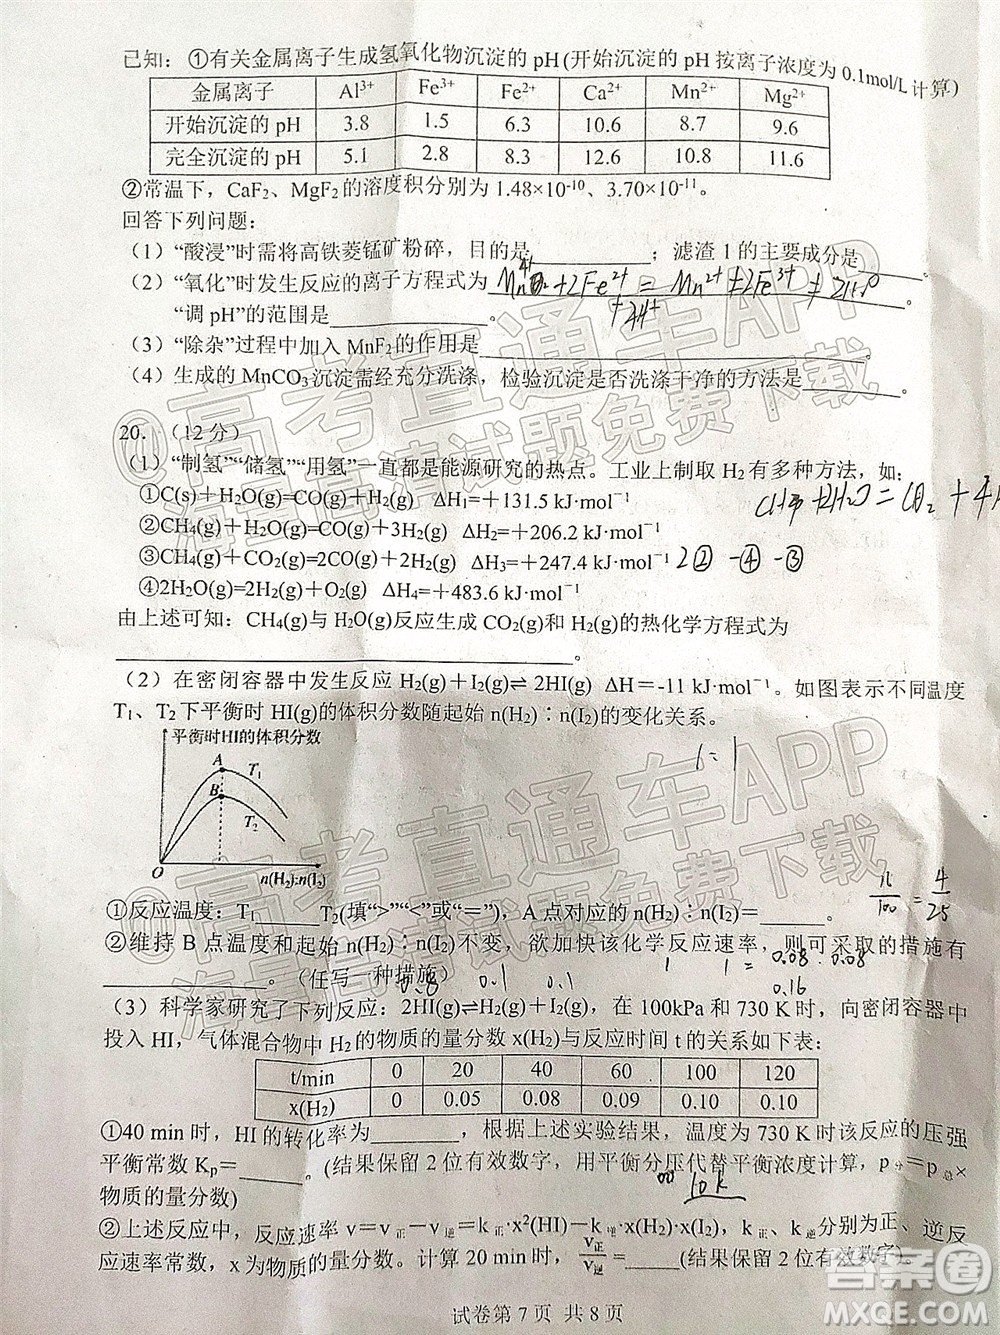 已知：①有关金属离子生成氢氧化物沉淀的 pH (开始沉淀的 pH 按离子浓度为 0.1mol/L 计算)
金属离子 Al³⁺ Fe³⁺ Fe²⁺ Ca²⁺ Mn²⁺ Mg²⁺
开始沉淀的 pH 3.8 1.5 6.3 10.6 8.7 9.6
完全沉淀的 pH 5.1 2.8 8.3 12.6 10.8 11.6
②常温下，CaF₂、MgF₂的溶度积分别为 1.48×10⁻¹⁰、3.70×10⁻¹¹。
回答下列问题：
（1）“酸浸”时需将高铁菱锰矿粉碎，目的是________；滤渣 1 的主要成分是________。
（2）“氧化”时发生反应的离子方程式为________。
+4H⁺
“调 pH”的范围是________。
（3）“除杂”过程中加入 MnF₂的作用是________。
（4）生成的 MnCO₃沉淀需经充分洗涤，检验沉淀是否洗涤干净的方法是________。
20．（12 分）
（1）“制氢”“储氢”“用氢”一直都是能源研究的热点。工业上制取 H₂有多种方法，如：
①C(s)＋H₂O(g)=CO(g)＋H₂(g) ΔH₁=＋131.5 kJ·mol⁻¹
②CH₄(g)＋H₂O(g)=CO(g)＋3H₂(g) ΔH₂=＋206.2 kJ·mol⁻¹
③CH₄(g)＋CO₂(g)=2CO(g)＋2H₂(g) ΔH₃=＋247.4 kJ·mol⁻¹ 2② -④ -③
④2H₂O(g)=2H₂(g)＋O₂(g) ΔH₄=＋483.6 kJ·mol⁻¹
由上述可知：CH₄(g)与 H₂O(g)反应生成 CO₂(g)和 H₂(g)的热化学方程式为
________。
（2）在密闭容器中发生反应 H₂(g)＋I₂(g)⇌2HI(g) ΔH＝-11 kJ·mol⁻¹。如图表示不同温度
T₁、T₂下平衡时 HI(g)的体积分数随起始 n(H₂)∶n(I₂)的变化关系。
1=1
平衡时HI的体积分数
A T₁
B T₂
O n(H₂):n(I₂)
16/100 = 4/25
①反应温度：T₁______T₂(填“>”“<”或“＝”)，A 点对应的 n(H₂)∶n(I₂)＝_____。
②维持 B 点温度和起始 n(H₂)∶n(I₂)不变，欲加快该化学反应速率，则可采取的措施有
________。（任写一种措施）
0.8 0.1 0.1 1 1 = 0.08 · 0.08
0.16
（3）科学家研究了下列反应：2HI(g)⇌H₂(g)＋I₂(g)，在 100kPa 和 730 K 时，向密闭容器中
投入 HI，气体混合物中 H₂的物质的量分数 x(H₂)与反应时间 t 的关系如下表：
t/min 0 20 40 60 100 120
x(H₂) 0 0.05 0.08 0.09 0.10 0.10
①40 min 时，HI 的转化率为________，根据上述实验结果，温度为 730 K 时该反应的压强
平衡常数 Kₚ＝_____。(结果保留 2 位有效数字，用平衡分压代替平衡浓度计算，p 分＝p 总×
物质的量分数)
②上述反应中，反应速率 v＝v 正－v 逆＝k 正·x²(HI)－k 逆·x(H₂)·x(I₂)，k 正、k 逆分别为正、逆反
应速率常数，x 为物质的量分数。计算 20 min 时，v正/v逆＝_____(结果保留 2 位有效数字)。
试卷第 7 页 共 8 页
@高考直通车APP
海量高清试题免费下载
高考直通车APP
海量高清试题免费下载
答案圈
MXQE.COM